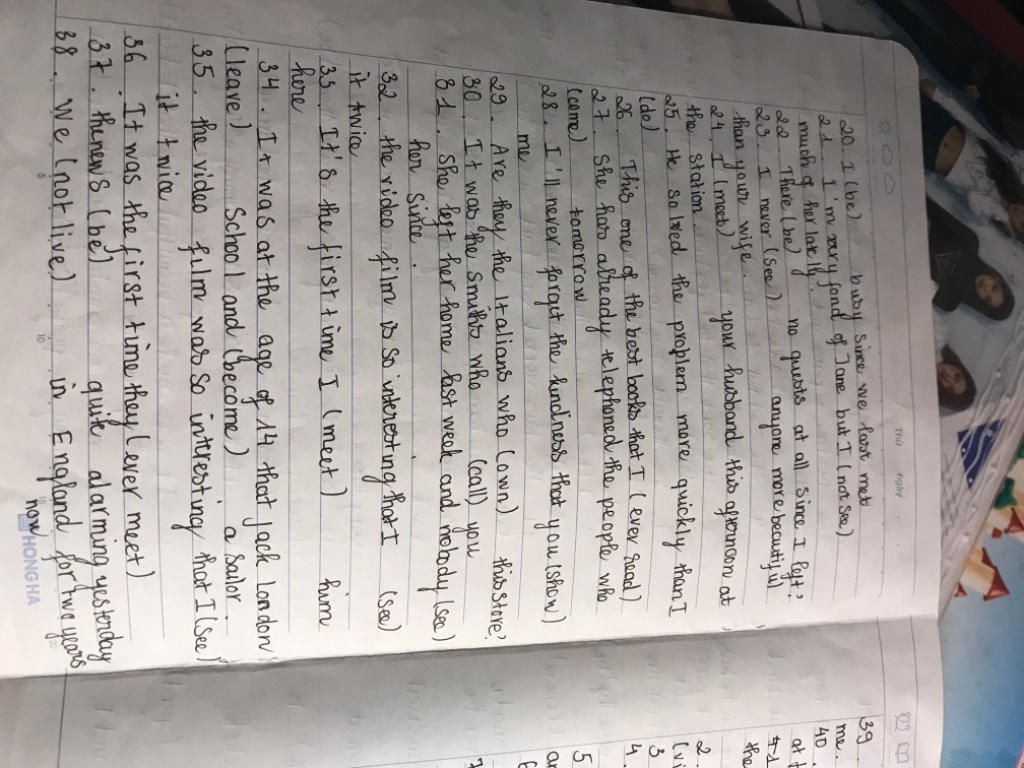 Thứ Ngày
20. I (be) busy since we last met
21. I'm very fond of Jane but I (not see)
much of her lately.
22 There (be) no guests at all since I left?
23. I never (see) anyone more beautiful
than your wife
24. I (meet) your husband this afternoon at
the station.
25. He solved the proplem more quickly than I
(do)
26. This one of the best books that I (ever read)
27. She has already telephoned the people who
(come) tomorrow
28. I'll never forget the kindness that you (show)
me
29. Are they the Italians who (own) this store?
30. It was the Smiths who (call) you
31. She left her home last weak and nobody (see)
her since.
32. the video film is so interesting that I (see)
it twice
33. It's the first time I (meet) him
here
34. It was at the age of 14 that Jack london
(leave) School and (become) a sailor
35. the video film was so interesting that I (see)
it twice
36. It was the first time they (ever meet)
37. the news (be) quite alarming yesterday
38. We (not live) in England for two years
now
HONGHA
39
me.
40
41
the
2.
(vi
3
4.
5
an
6
7